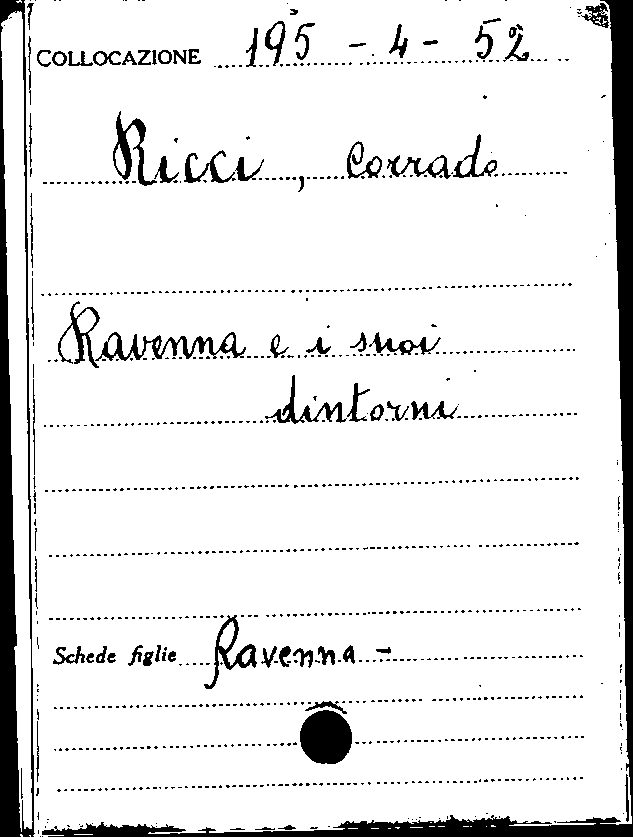 COLLOCAZIONE 195 - 4 - 52
Ricci, Corrado
Ravenna e i suoi
dintorni
Schede figlie Ravenna -